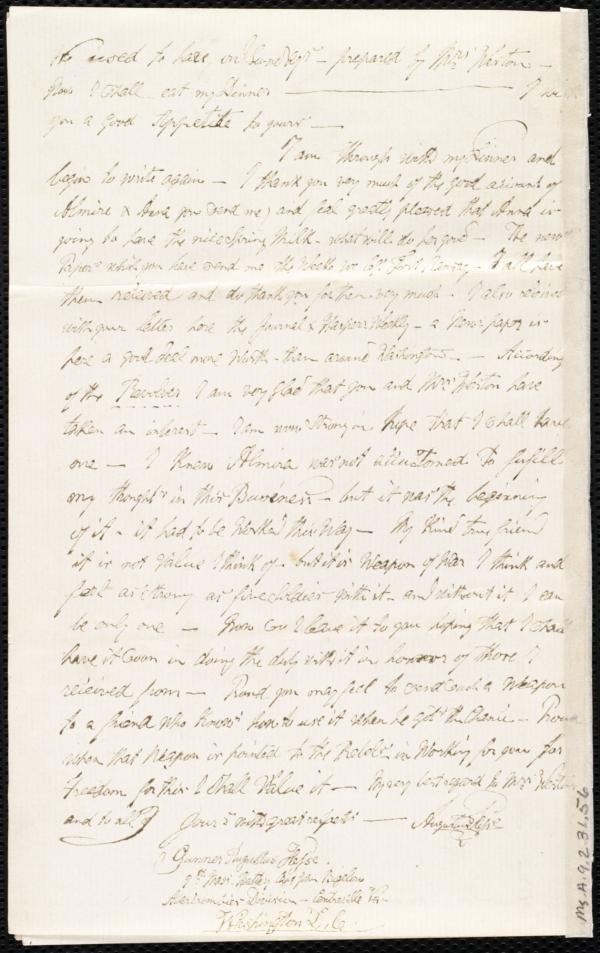 We used to have on Sunday's - prepared by Mrs Weston -
Now I shall eat my Dinner — I wish
you a good Appetite to yours -
I am through with my Dinner and
begin to write again - I thank you very much of the good account of
Almira & Anna you send me, and feel greatly pleased that Anna is
going to have the nice Spring Milk - what will do her good - The news
Papers which you have send me the Weeks we left Fort Ramsay - I all have
them received and do thank you for them very much - I also received
with your letter here the Journal & Harpers Weekly - a News paper is
here a good deal more Worth - than around Washington - According
of the Revolver I am very glad that you and Mrs Weston have
taken an interest - I am now Strong in hope that I shall have
one - I Knew Almira was not accustomed to fulfill
my thoughts in this Business - but it was the beginning
of it - it had to be Worked this Way - My Kind true friend
it is not Value I think of - but it is Weapon of War I think and
feel as strong as five Soldier with it - and without it I can
be only one - Now I leave it to you hoping that I shall
have it soon in doing the duty with it in honor of those I
received from - Proud you may feel to send such a Weapon
to a friend who knows how to use it when he gets the Chance - Proud
when that Weapon is pointed to the Rebels in Working for your
Freedom for this I shall Value it - My very best regard to Mrs Weston
and to all
Yours with great respects - Augustus Hesse
Gunner Augustus Hesse
9th Mass Battery Capt John Bigelow
Abercrombies Division - Centreville Va
Washington D.C.
Ms.A.9.2.31.56